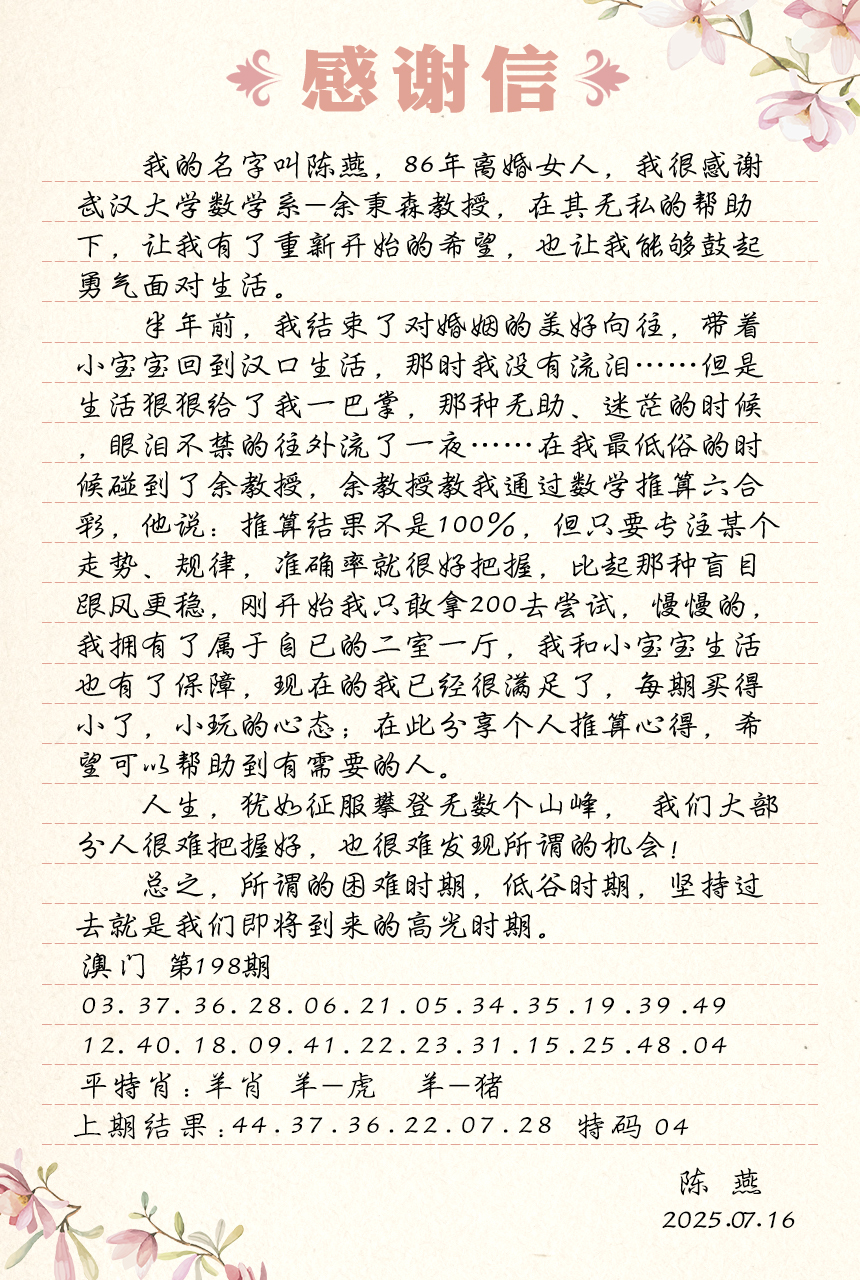 感谢信
我的名字叫陈燕，86年离婚女人，我很感谢
武汉大学数学系—余秉森教授，在其无私的帮助
下，让我有了重新开始的希望，也让我能够鼓起
勇气面对生活。
半年前，我结束了对婚姻的美好向往，带着
小宝宝回到汉口生活，那时我没有流泪……但是
生活狠狠给了我一巴掌，那种无助、迷茫的时候
，眼泪不禁的往外流了一夜……在我最低俗的时
候碰到了余教授，余教授教我通过数学推算六合
彩，他说：推算结果不是100%，但只要专注某个
走势、规律，准确率就很好把握，比起那种盲目
跟风更稳，刚开始我只敢拿200去尝试，慢慢的，
我拥有了属于自已的二室一厅，我和小宝宝生活
也有了保障，现在的我已经很满足了，每期买得
小了，小玩的心态；在此分享个人推算心得，希
望可以帮助到有需要的人。
人生，犹如征服攀登无数个山峰， 我们大部
分人很难把握好，也很难发现所谓的机会！
总之，所谓的困难时期，低谷时期，坚持过
去就是我们即将到来的高光时期。
澳门 第198期
03.37.36.28.06.21.05.34.35.19.39.49
12.40.18.09.41.22.23.31.15.25.48.04
平特肖：羊肖 羊—虎 羊—猪
上期结果：44.37.36.22.07.28 特码 04
陈 燕
2025.07.16